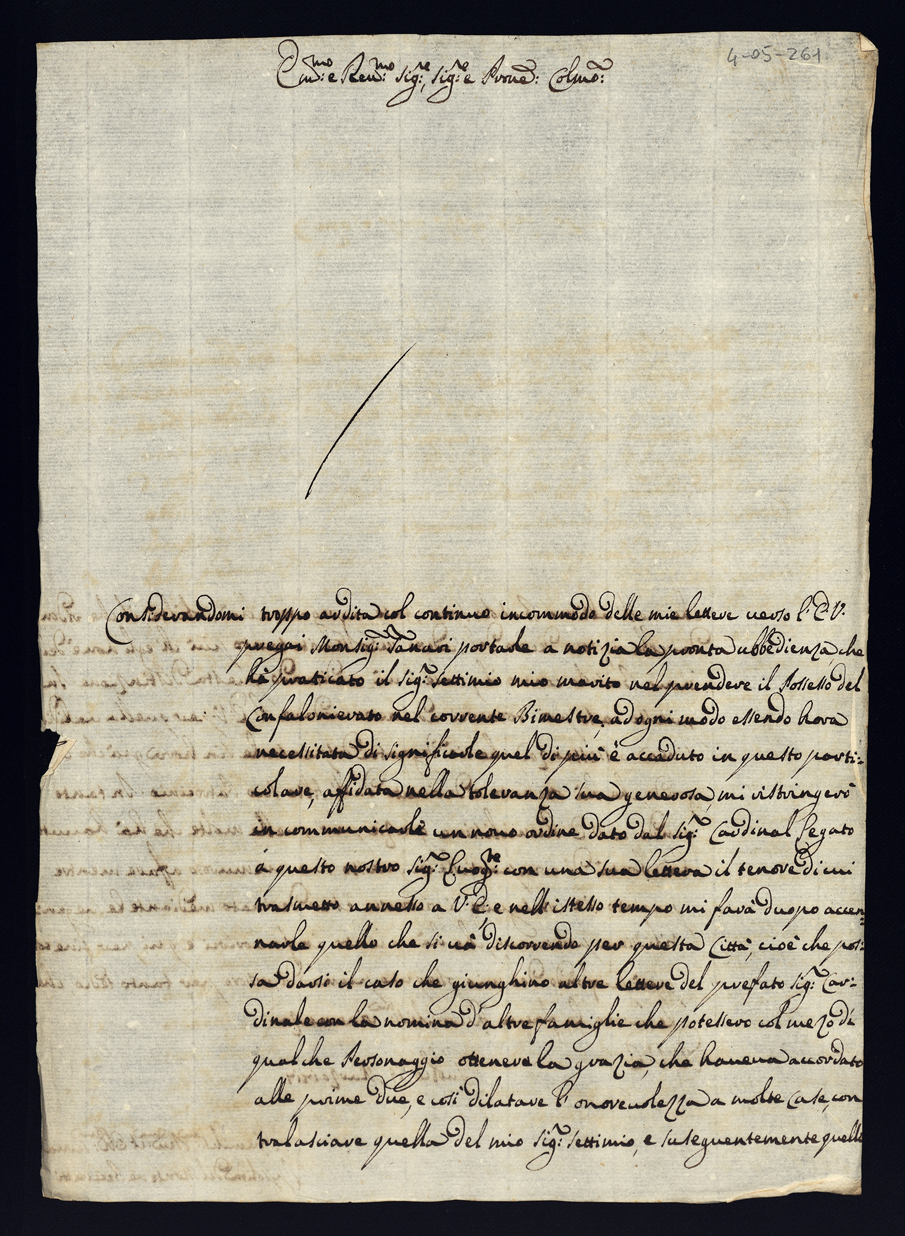 4-05-261
Em:mo e Rev:mo Sig:re, Sig:re e Prone: Colmo:
Considerandomi troppo ardita col continuo incommodo delle mie lettere verso l'E.V.
pregai Monsig:r Tanari portarle a notizia la pronta ubbedienza che
hà praticato il sig:r Settimio mio marito nel prendere il Possesso del
Confalonierato nel corrente Bimestre, ad ogni modo essendo hora
necessitata di significarle quel di più è accaduto in questo parti-
colare, affidata nella toleranza sua generosa, mi ristringerò
in communicarle un novo ordine dato dal sig:r Cardinal Legato
à questo nostro sig:r Luog:te con una sua lettera il tenore di cui
trasmetto annesso a V.E; e nell'istesso tempo mi farà duopo accen-
narle quello che si và discorrendo per questa Città, cioè che pos-
sa darsi il caso che giunghino altre lettere del prefato sig:r Car-
dinale con la nomina d'altre famiglie che potessero col mezo di
qualche Personaggio ottenere la grazia, che haveva accordato
alle prime due, e così dilatare l'onorevolezza a molte Case, con
tralasciare quella del mio sig:r Settimio, e suseguentemente quelle